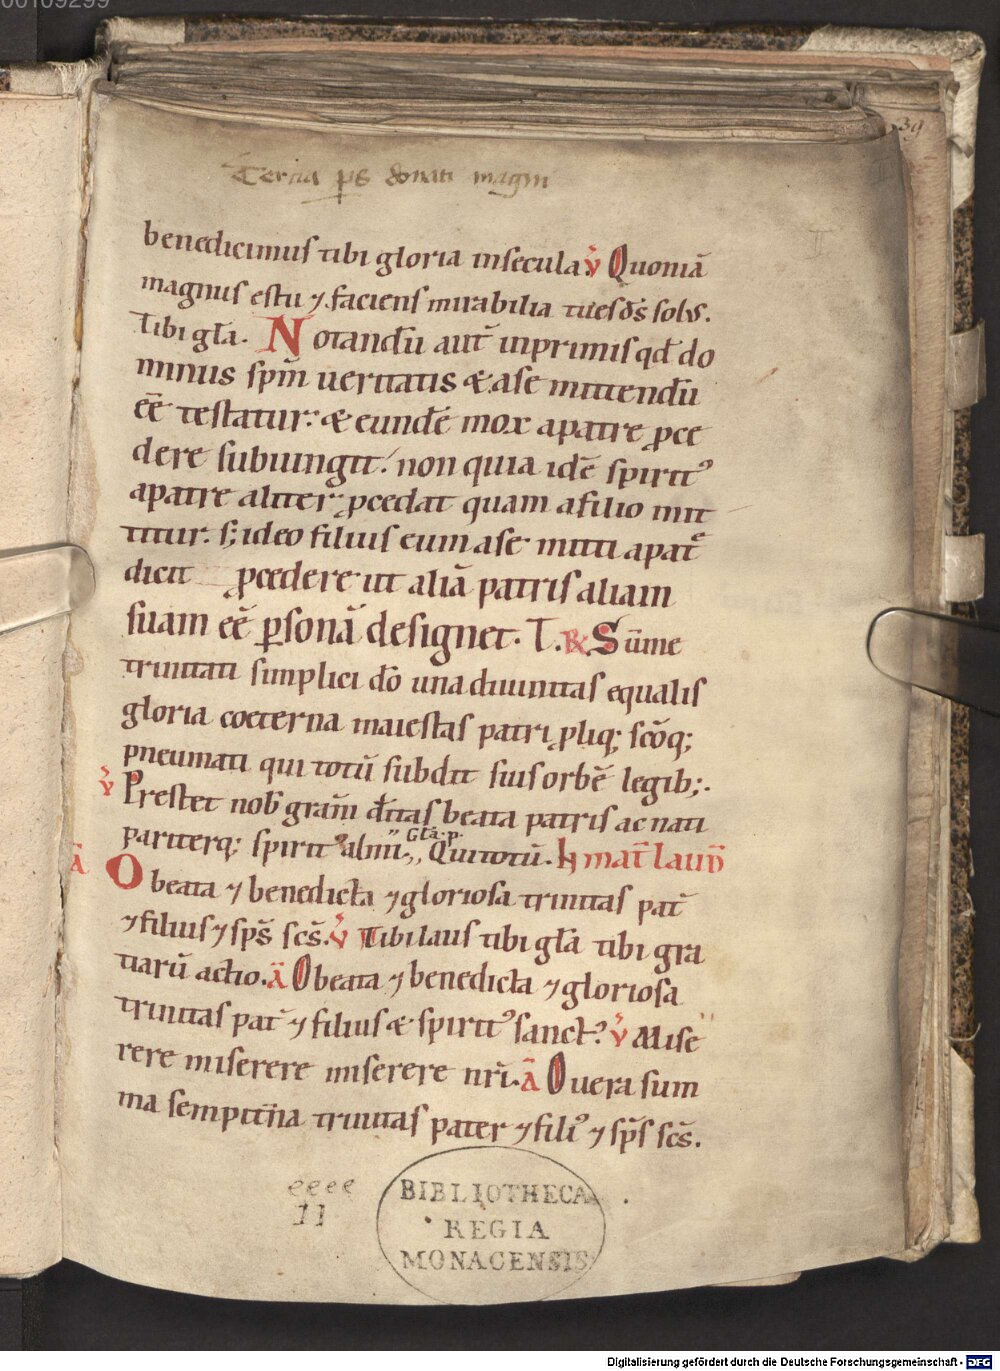 00109299
39
Tercia ps donati magni
II
benedicimus tibi gloria insecula. v̉ Quoniā
magnus es tu ⁊ faciens mirabilia tu es ds̄ solus.
Tibi gła. Notandū aut̄ inprimis qđ do
minus spm̄ ueritatis & a se mittendū
ēē testatur. & eundē mox apatre ꝓce
dere subiungit. non quia idē spirit᾽
apatre aliter ꝓcedat quam afilio mit
titur. s; ideo filius eum ase mitti apatre
dicit ꝓcedere ut aliā patris aliam
suam ēē ꝑsonā designet. T. R̷ Sūme
trinitati simplici dō una diuinitas equalis
gloria coeterna maiestas patri ꝓliq; scōq;
pneumati qui totū subdit suis orbē legib;.
v̉ Prestet nob̄ gram̄ dītas beata patris ac nati
pariterq; spirit᾽ almi. Gła. p. Qui totū. Iɴ mat̄ laud̄
ā O beata ⁊ benedicta ⁊ gloriosa trinitas pat̄
⁊ filius ⁊ sps̄ scs̄. v̉ Tibi laus tibi gła tibi gra
tiarū actio. ā O beata ⁊ benedicta ⁊ gloriosa
trinitas pat̄ ⁊ filius & spirit᾽ sanct᾽. v̉ Mise
rere miserere miserere nri̅. ā O uera sum
ma sempit̄na trinitas pater ⁊ fili᾽ ⁊ sps̄ scs̄.
eeee
11
BIBLIOTHECA
REGIA
MONACENSIS
Digitalisierung gefördert durch die Deutsche Forschungsgemeinschaft - DFG